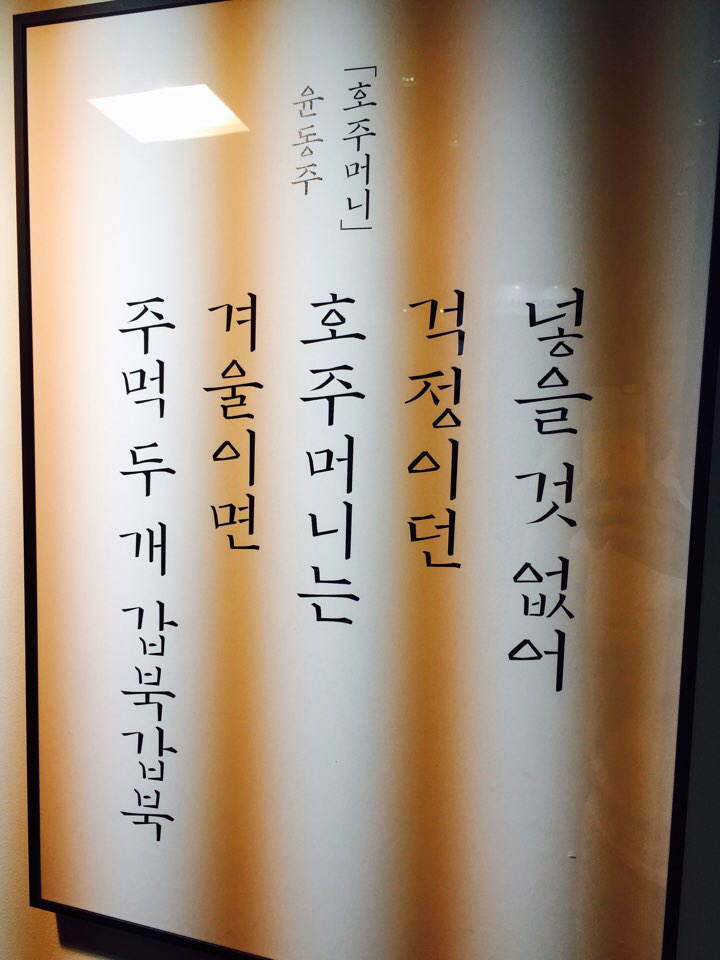 「호주머니」
윤동주
넣을 것 없어
걱정이던
호주머니는
겨울이면
주먹 두 개 갑북갑북